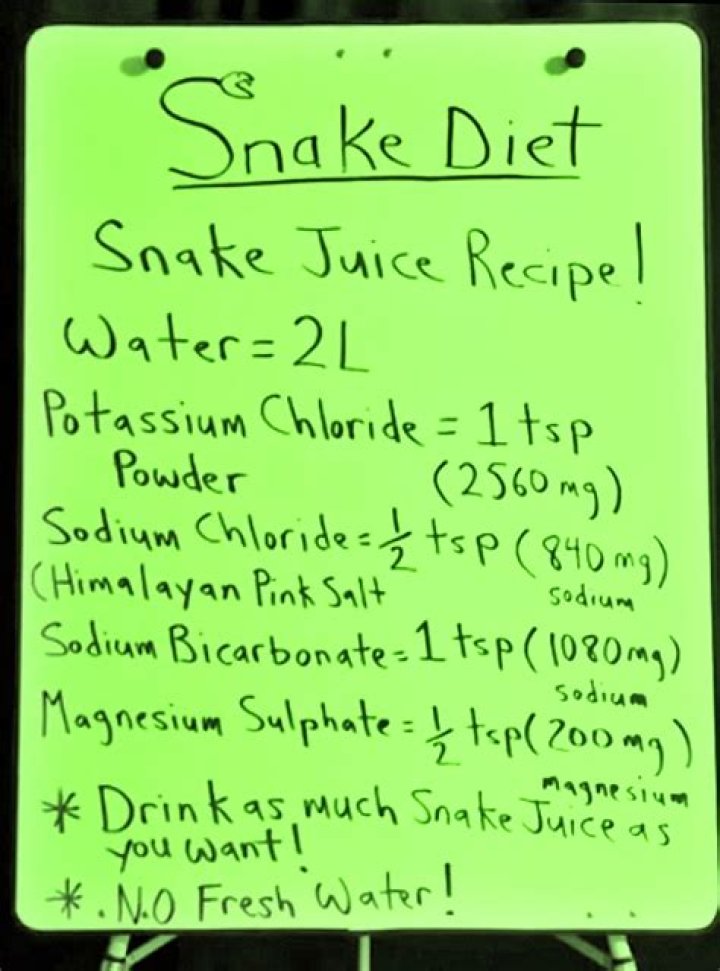 Snake Diet
Snake Juice Recipe!
Water = 2L
Potassium Chloride = 1 tsp
Powder (2560 mg)
Sodium Chloride = 1/2 tsp (840 mg)
(Himalayan Pink Salt sodium
Sodium Bicarbonate = 1 tsp (1080mg)
sodium
Magnesium Sulphate = 1/2 tsp (200 mg)
magnesium
* Drink as much Snake Juice as
you want!
* .N.O Fresh Water!